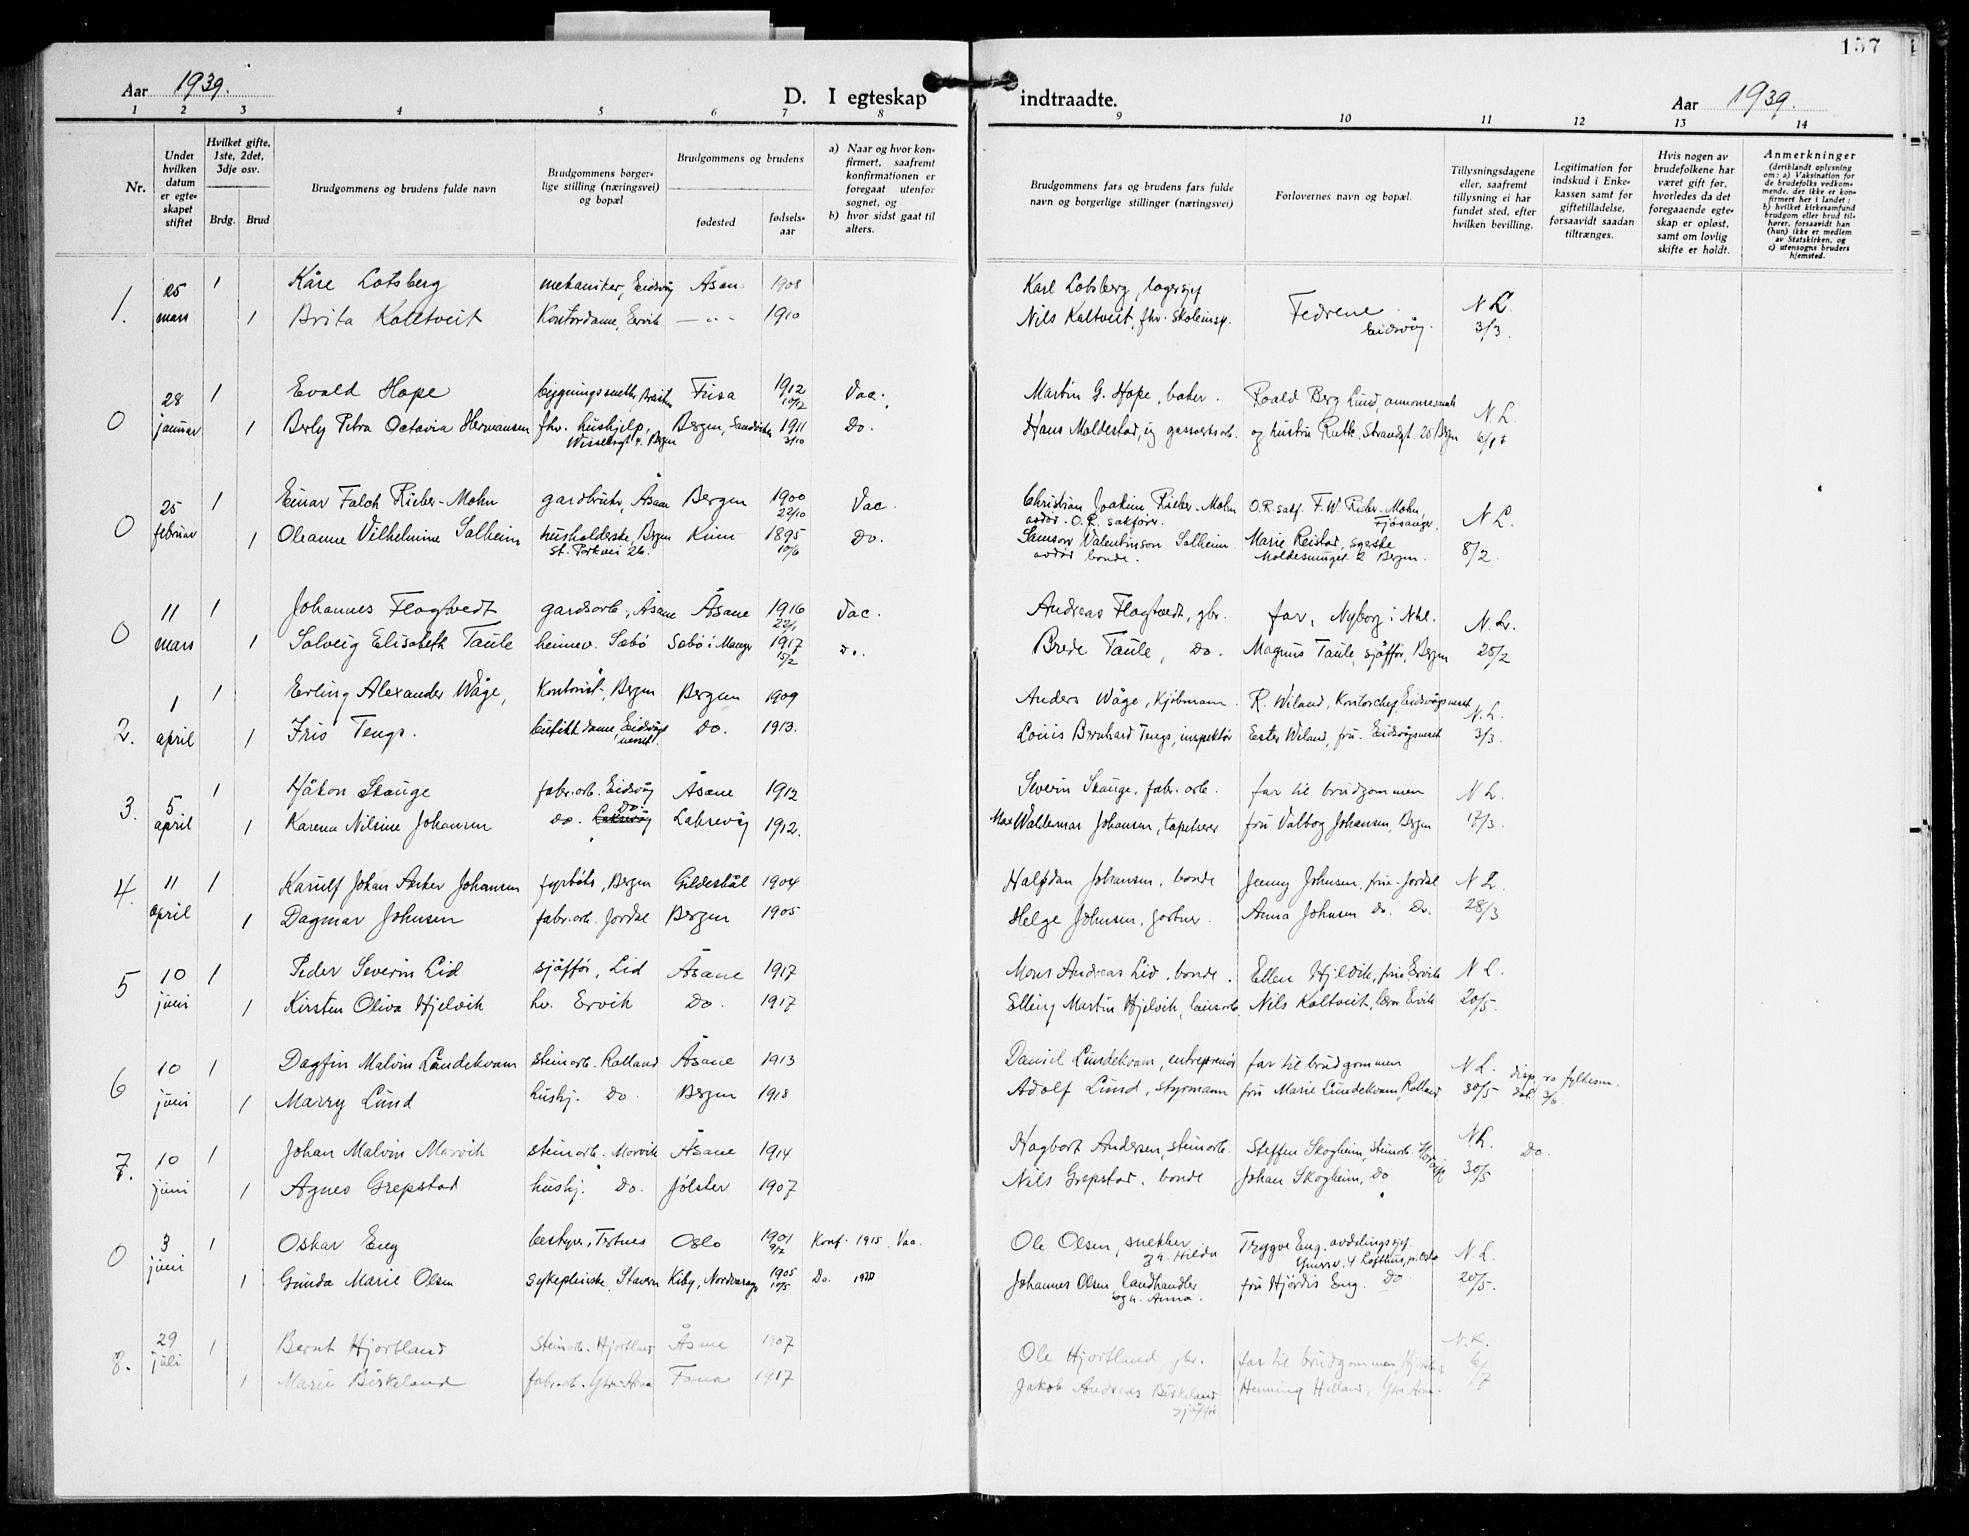 157
Aar 1939.
D. I egteskap indtraadte.
Aar 1939.
1 2 3 4 5 6 7 8 9 10 11 12 13 14
Nr.
Under hvilken datum er egteskapet stiftet
Hvilket gifte, 1ste, 2det, 3dje osv.
Brdg. Brud
Brudgommens og brudens fulde navn
Brudgommens borgerlige stilling (næringsvei) og bopæl
Brudgommens og brudens
fødested
fødselsaar
a) Naar og hvor konfirmert, saafremt konfirmationen er foregaat utenfor sognet, og
b) hvor sidst gaat til alters.
Brudgommens fars og brudens fars fulde navn og borgerlige stillinger (næringsvei)
Forlovernes navn og bopæl.
Tillysningsdagene eller, saafremt tillysning ei har fundet sted, efter hvilken bevilling.
Legitimation for indskud i Enkekassen samt for giftetilladelse, forsaavidt saadan tiltrænges.
Hvis nogen av brudefolkene har været gift før, hvorledes da det foregaaende egteskap er opløst, samt om lovlig skifte er holdt.
Anmerkninger
(deriblandt oplysning om: a) Vaksination for de brudefolks vedkommende, der ikke er konfirmert her i landet; b) hvilket kirkesamfund brudgom eller brud tilhører, forsaavidt han (hun) ikke er medlem av Statskirken, og c) utensogns bruders hjemsted.
1. 25 mars 1 Kåre Lotsberg mekaniker, Eidsvåg Åsane 1908 Karl Lotsberg, lagersjef Fedrene N.L.
1 Brita Kaltveit Kontordame, Ervik — " — 1910 Nils Kaltveit, fhv. skoleinsp. Eidsvåg. 3/3.
0 28 januar 1 Evald Hope bygningssnekker, Fusa 1912 10/12 Vac. Martin G. Hope, baker. Roald Berg Lund, N.L.
1 Berly Petra Octavia Hermansen fhv. hushjelp, Bergen, Sandviken 1911 3/10 Do. Hans Moldestad, gassverksarb. og hustru Ruth. Strandgt. 25 Bergen
0 25 februar 1 Einar Falch Rieber-Mohn gardbruker, Åsane Bergen 1900 22/10 Vac. Christian Joakim Rieber-Mohn O.R. sakf. F.W. Rieber-Mohn, N L.
avdød. O.R. sakfører. Fjøsanger.
1 Oleanne Vilhelmine Solheim husholderske, Bergen Kinn 1895 10/6 Do. Samson Valentinson Solheim Marie Reistad, 8/2.
avdød bonde. Bergen.
0 11 mars 1 Johannes Flagtvedt gardsarb., Åsane Åsane 1916 22/1 Vac. Andreas Flagtvedt, gbr. far, Nyborg i Nhl. N.L.
1 Solveig Elisabeth Taule heimev. Sæbø Sæbø i Manger 1917 15/2 Do. Brede Taule, Do. Magnus Taule, sjåfør, Bergen 25/2
2. 1 april 1 Erling Alexander Wåge, Kontorist, Bergen Bergen 1909 Anders Wåge, Kjøbmann. R. Wiland, Kontorchef, Eidsvågsneset N.L.
1 Iris Tengs. butikkdame, Eidsvågsneset. Do. 1913. Louis Bernhard Tengs, inspektør Ester Wiland, fru. Eidsvågsneset 3/3.
3. 5 april 1 Håkon Skauge fabr. arb. Eidsvåg Åsane 1912 Severin Skauge, fabr. arb. far til brudgommen N L.
1 Karena Nilsine Johansen do. Laksevåg Do. Laksevåg 1912. Max Waldemar Johansen, tapetserer fru Valbog Johansen, Bergen 17/3.
4. 11 april 1 Karulf Johan Anker Johansen fyrbøter, Bergen Gildeskål 1904 Halfdan Johansen, bonde Jenny Johnsen, frue Jordal N L.
1 Dagmar Johnsen fabr. arb. Jordal Bergen 1905 Helge Johnsen, gartner. Anna Johnsen Do. Do. 28/3
5 10 juni 1 Peder Severin Lid sjåffør, Lid Åsane 1917 Mons Andreas Lid, bonde. Ellen Hjelvik, frue Ervik N L.
1 Kirsten Oliva Hjelvik hv. Ervik Do. 1917 Elling Martin Hjelvik, Nils Kaltveit, lærer Ervik 20/5.
6 10 juni 1 Dagfin Malvin Lundekvam steinarb. Rolland Åsane 1913 Daniel Lundekvam, entreprenør far til brudgommen N L. disp. fylkesm.
1 Marry Lund hushj. Do. Bergen 1918 Adolf Lund, styrmann fru Marie Lundekvam, Rolland 30/5 dat. 3/6.
7. 10 juni 1 Johan Malvin Morvik steinarb. Morvik Åsane 1914 Hagbart Andersen, steinarb. Steffen Skogheim, steinarb. Morvik NL. Do.
1 Agnes Grepstad hushj. Do. Jølster 1907 Nils Grepstad, bonde Johan Skogheim, Do 30/5
0 3 juni 1 Oskar Eng bestyrer, Tertnes Oslo 1901 9/2 Konf. 1915. Vac. Ole Olsen, snekker Trygve Eng, avdelingssjef N.L.
g.h. Hilda
1 Gunda Marie Olsen sykepleierske, Stavern Kiby, Nordvaranger 1905 10/5 Do. Johannes Olsen landhandler fru Hjørdis Eng. Do 20/5.
og h. Anna.
8. 29 juli 1 Bernt Hjortland steinarb. Hjortland Åsane 1907 Ole Hjortland gbr. far til brudgommen, Hjortland N.K.
1 Marie Birkeland fabr. arb. Ytre Arna Fana 1917 Jakob Andreas Birkeland Henning Helland, Ytre Arna. 6/7
sjåfør